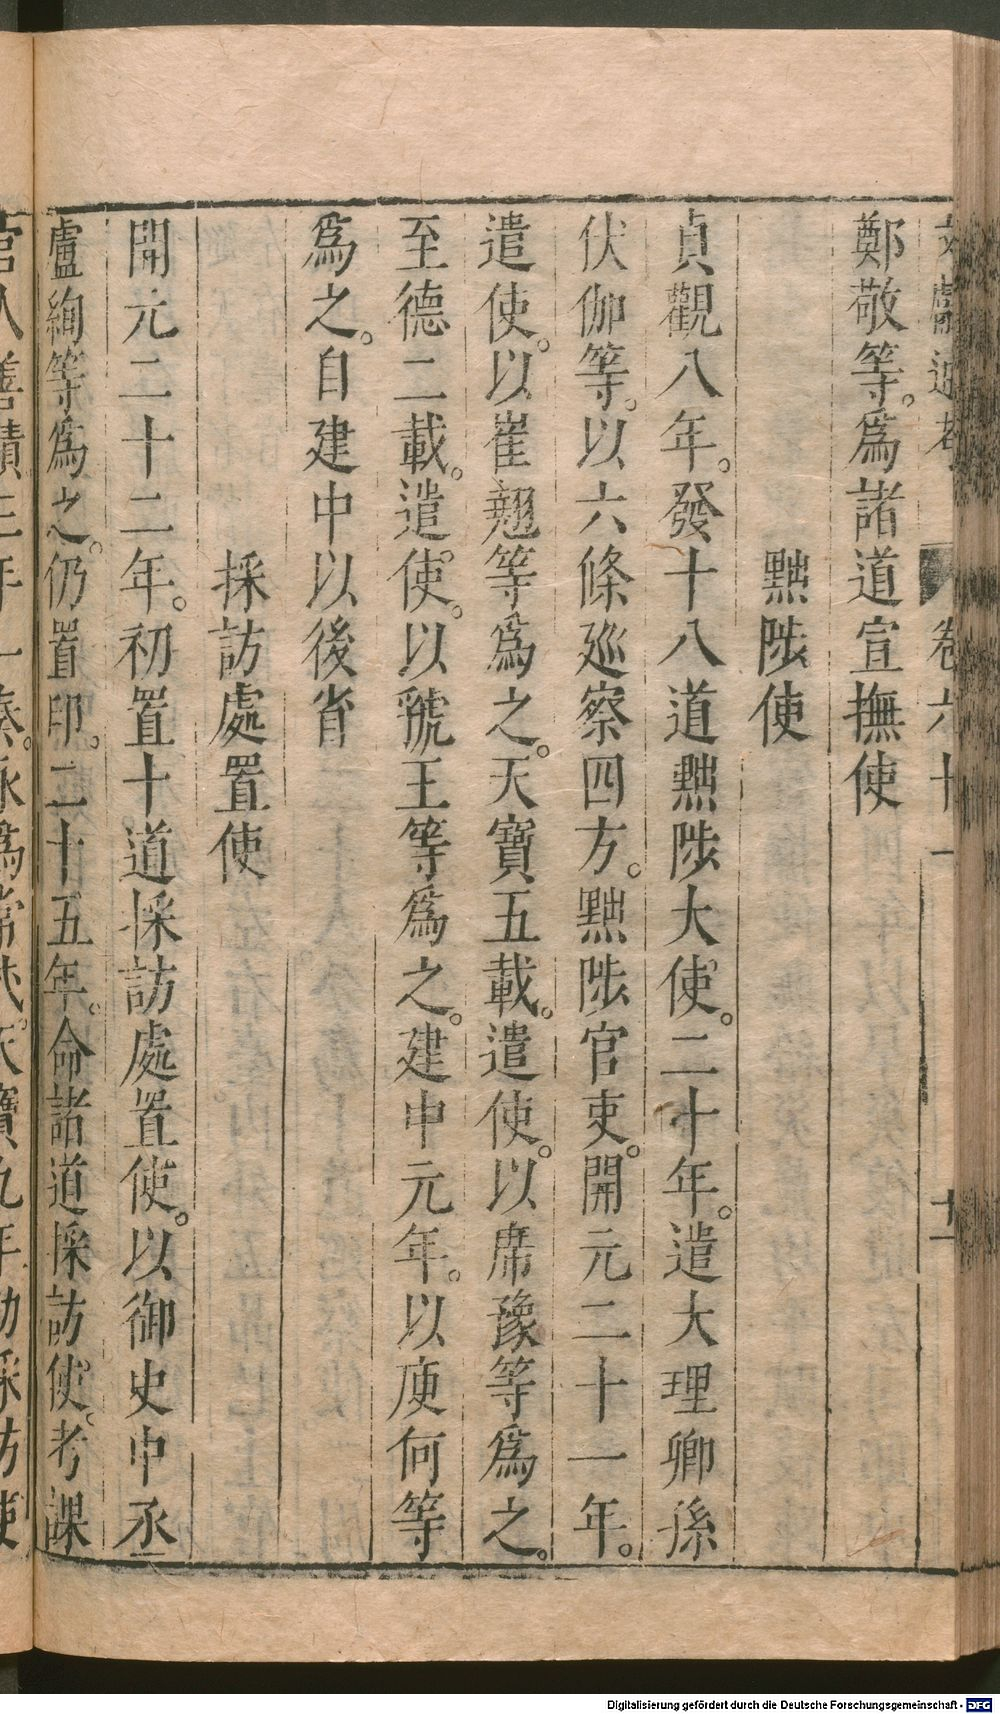 文獻通考 卷六十一 十一
鄭敬等。爲諸道宣撫使
黜陟使
貞觀八年。發十八道黜陟大使。二十年。遣大理卿孫
伏伽等。以六條廵察四方。黜陟官吏。開元二十一年。
遣使。以崔翹等爲之。天寶五載。遣使。以席豫等爲之。
至德二載。遣使。以虢王等爲之。建中元年。以庾何等
爲之。自建中以後省
採訪處置使
開元二十二年。初置十道採訪處置使。以御史中丞
盧絢等爲之。仍置印。二十五年。命諸道採訪使。考課
官人善績三年一奏。永爲常式。天寶九年勅採訪使
Digitalisierung gefördert durch die Deutsche Forschungsgemeinschaft - DFG